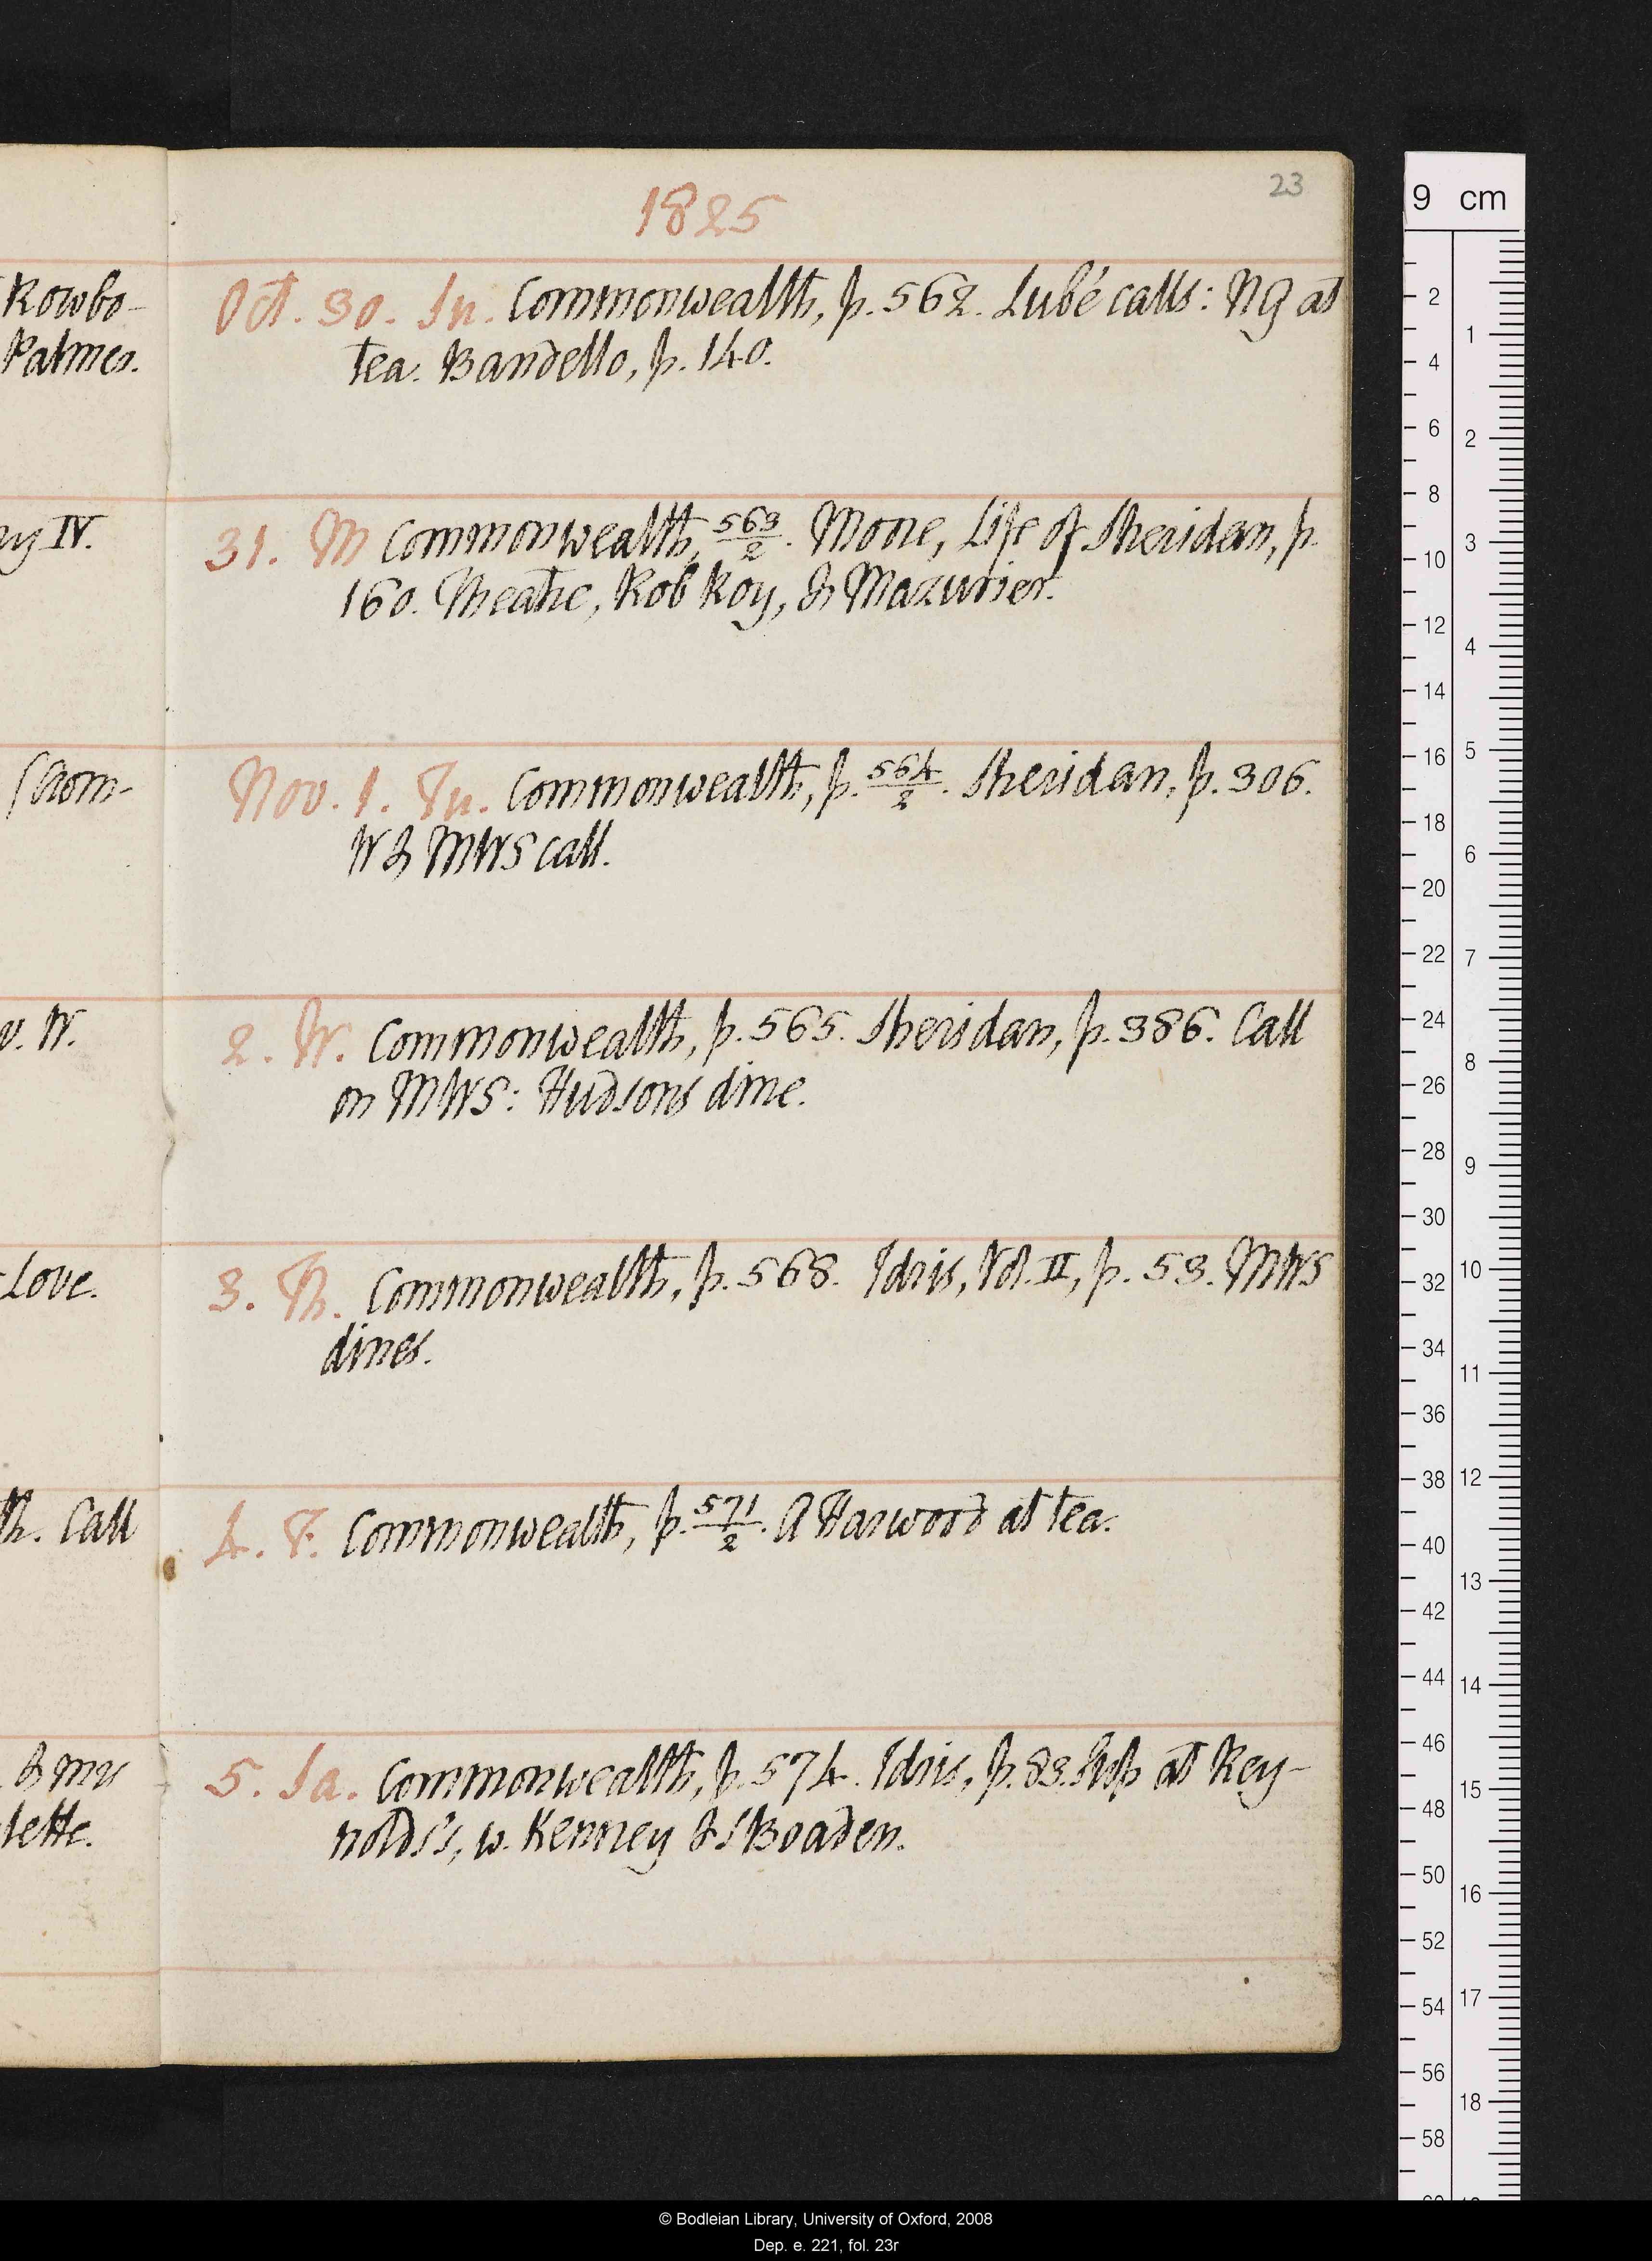 23
1825
Oct. 30. Su. Commonwealth, p. 562. Lubé calls: NG at
tea. Bandello, p. 140.
31. M Commonwealth, 563/2. Moore, Life of Sheridan, p.
160. Theatre, Rob Roy, & Mazurier.
Nov. 1. Tu. Commonwealth, p. 564/2. Sheridan, p. 306.
W & MWS call.
2. W. Commonwealth, p. 565. Sheridan, p. 386. Call
on MWS: Hudsons dine.
3. Th. Commonwealth, p. 568. Idris, Vol. II, p. 53. MWS
dines.
4. F. Commonwealth, p. 571/2. A Harwood at tea.
5. Sa. Commonwealth, p. 574. Idris, p. 83. Sup at Rey-
nolds's, w. Kenney & J Boaden.
Rowbo-
Palmer.
ny IV.
v. W.
Love.
Th. Call
lette.
9 cm
2
4
6
8
10
12
14
16
18
20
22
24
26
28
30
32
34
36
38
40
42
44
46
48
50
52
54
56
58
1
2
3
4
5
6
7
8
9
10
11
12
13
14
15
16
17
18
© Bodleian Library, University of Oxford, 2008
Dep. e. 221, fol. 23r